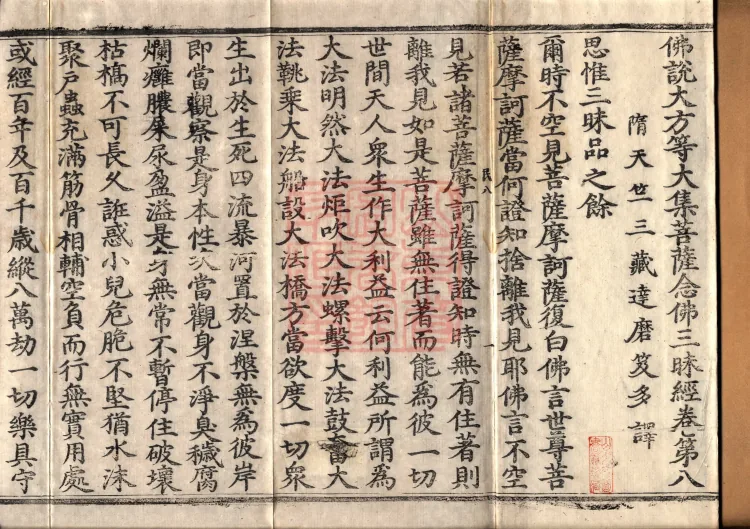 佛說大方等大集菩薩念佛三昧經卷第八
隋天竺三藏達磨笈多譯
思惟三昧品之餘
爾時不空見菩薩摩訶薩復白佛言世尊菩
薩摩訶薩當何證知捨離我見耶佛言不空
見若諸菩薩摩訶薩得證知時無有住著則
民八
一
離我見如是菩薩雖無住著而能為彼一切
世間天人眾生作大利益云何利益所謂為
大法明然大法炬吹大法螺擊大法鼓奮大
法䠷乘大法船設大法橋方當欲度一切眾
生出於生死四流暴河置於涅槃無為彼岸
即當觀察是身本性次當觀身不淨臭穢腐
爛癰膿屎尿盈溢是身無常不暫停住破壞
枯槁不可長久誑惑小兒危脆不堅猶水沫
聚戶蟲充滿筋骨相輔空負而行無實用處
或經百年及百千歲縱八萬劫一切樂具守